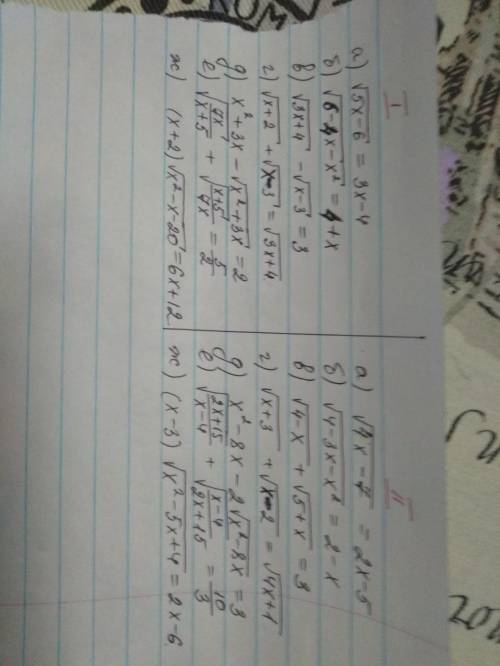 I
а) √(5x-6) = 3x-4
б) √(6-4x-x²) = 4+x
в) √(3x+4) - √(x-3) = 3
г) √(x+2) + √(x-3) = √(3x+4)
д) x²+3x-√(x²+3x) = 2
е) √(7x/(x+5)) + √((x+5)/7x) = 5/2
ж) (x+2)√(x²-x-20) = 6x+12
II
а) √(4x-7) = 2x-5
б) √(4-3x-x²) = 2-x
в) √(4-x) + √(5+x) = 3
г) √(x+3) + √(x-2) = √(4x+1)
д) x²-8x-2√(x²-8x) = 3
е) √((2x+15)/(x-4)) + √((x-4)/(2x+15)) = 10/3
ж) (x-3)√(x²-5x+4) = 2x-6